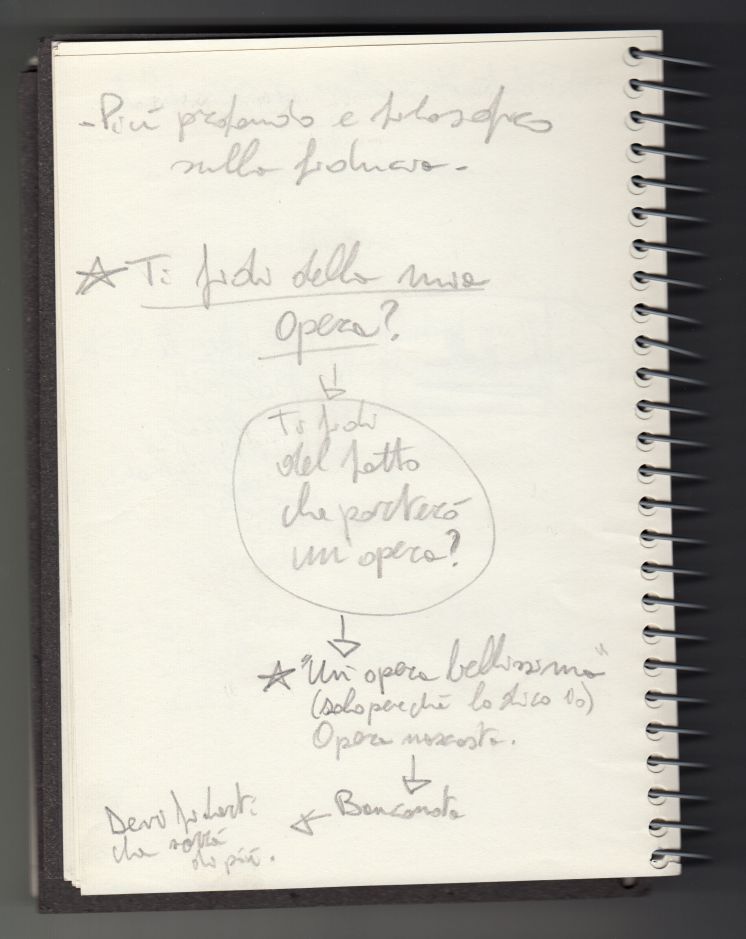 -Più profondo e filosofico
sulla fiducia-
Ti fidi della mia
opera?
Ti fidi
del fatto
che porterò
un opera?
"Un opera bellissima"
(solo perchè lo dico io)
Opera nascosta.
Banconota
Devi fidarti
che sarà
di più.